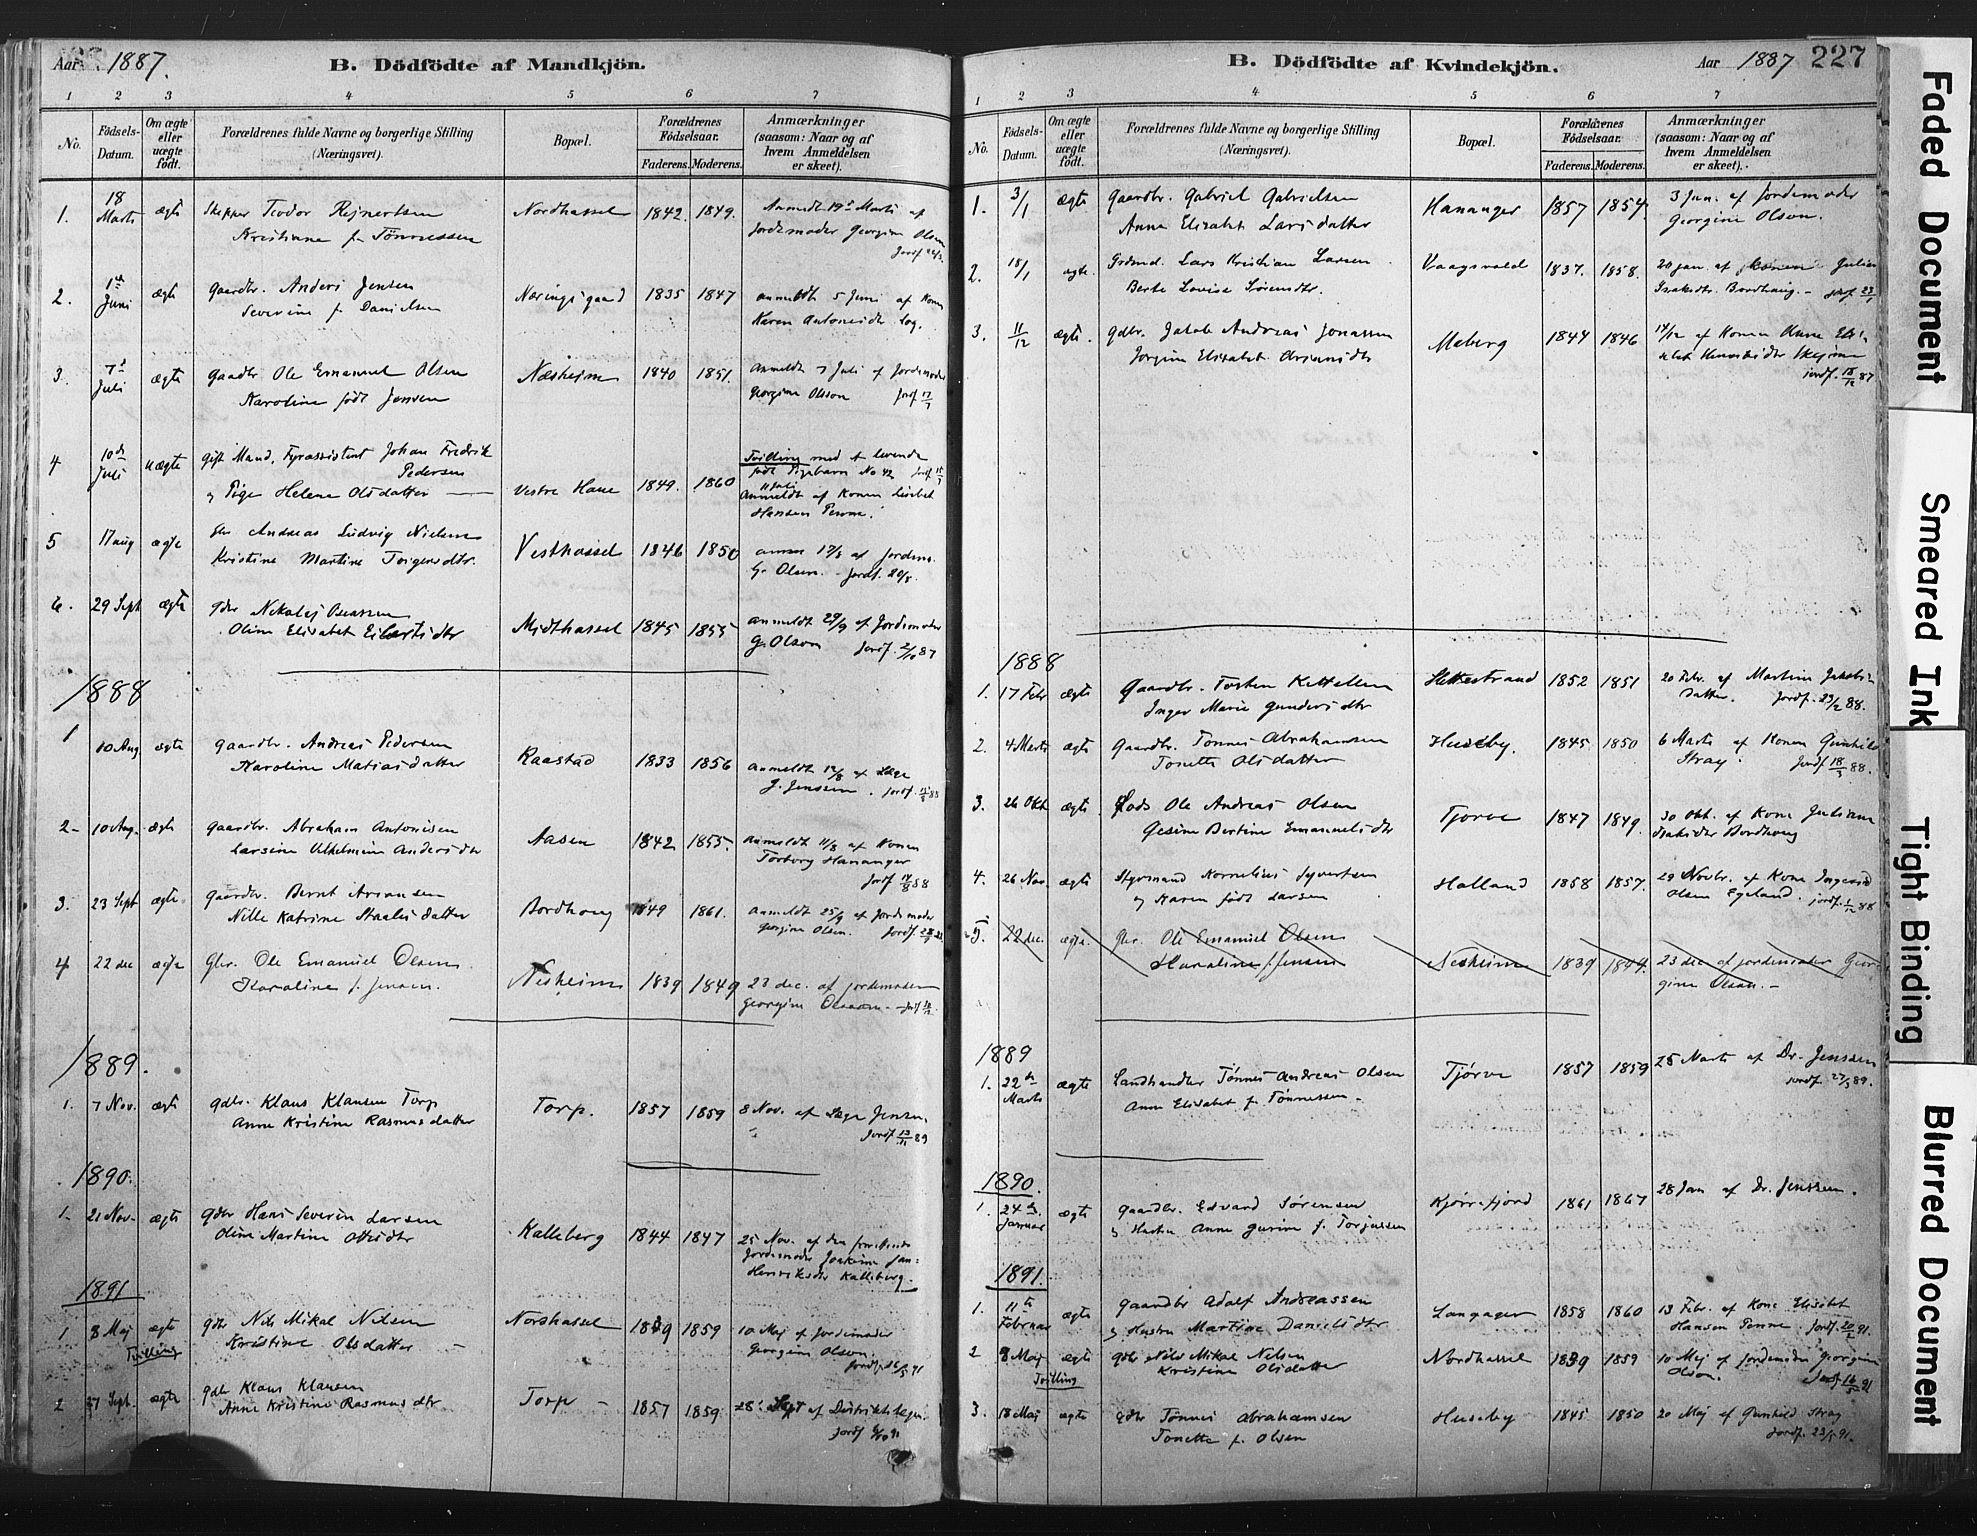 Aar 1887.
B. Dödfödte af Mandkjön.
1 2 3 4 5 6 7
No.
Födsels-
Datum.
Om ægte
eller
uægte
födt.
Forældrenes fulde Navne og borgerlige Stilling
(Næringsvei).
Bopæl.
Forældrenes
Födselsaar.
Faderens. Moderens.
Anmærkninger
(saasom: Naar og af
hvem Anmeldelsen
er skeet).
1. 18 Marts ægte Skipper Teodor Rejnertsen Nordhassel 1842. 1849. Anmeldt 19de Marts af
Kristiane f. Tönnessen Jordemoder Georgine Olsen
2. 1ste Juni ægte Gaardbr. Anders Jensen Næringsgaard 1835 1847 anmeldt 5 Juni af Konen
Severine f. Danielsen Karen Antonisdtr.
3. 7de Juli ægte Gaardbr Ole Emanuel Olsen Næsheim 1840 1851. Anmeldt 7 Juli af Jordemoder
Karoline födt Jensen Georgine Olsson Jordf. 17/7
4 10de Juli uægte Gift Mand, Fyrassistent Johan Fredrik
Pedersen
og Pige Helene Olsdatter Vestre Haue 1849. 1860
Tvilling med et levende
födt Pigebarn No 42
11 Juli
Anmeldt af Konen Lisbet
Hansen Penne.
5 17 aug ægte Andreas Ludvig Nielsen Vesthassel 1846 1850 af Jordem.
Kristine Martine Torgersdtr. G. Olsen. - Jordf. 20/8.
6. 29 Sept ægte Gbr Nikolaj Oseassen Midthassel 1845 1855 anmeldt 29/9 af Jordemoder
Oline Elisabet Eilertsdtr G. Olsson Jordf. 2/10 87
1888
1 10 Aug ægte Gaardbr. Andreas Pedersen Raastad 1833 1856 anmeldt 12/8 af Læge
Karoline Matiasdatter J. Jenssen.
2- 10 Aug. ægte Gaardbr. Abraham Antonisen Aasen 1842 1855. anmeldt 11/8 af Konen
Larsine Vilhelmine Andersdtr Torborg Hananger
3. 23 Sept ægte Gaardbr. Bernt Arsansen Bordhoug 1849 1861. anmeldt 25/9 af Jordemoder
Nille Katrine Staalesdatter Georgine Olsen.
4 22 dec ægte Gbr. Ole Emanuel Olsen Nesheim 1839 1849 23 dec. af jordemoder
Karoline f. Jensen. Georgine Olsson
1889.
1. 7 Nov. ægte Gdbr. Klaus Klausen Torp Torp. 1857 1859 8 Nov. af Læge Jensen.
Anne Kristine Rasmusdatter Jordf. 13/11 89
1890.
1. 21 Nov. ægte Gdbr Hans Severin Larsen Kalleberg 1844 1847 25 Nov. af den
Oline Martine Jordemoder Joakime Jan-
Henriksdtr Kalleberg.
1891
1 8 Maj ægte Gdbr Nils Mikal Nilsen Nordhassel 1839 1859 10 Maj af Jordemoder
Tvilling Kristine Olsdatter Georgine Olson.
2 27 Sept. ægte Gdbr Klaus Klausen Torp 1857 1859. 28 Sept af Distriktslægen.
Anne Kristine Rasmusdtr
B. Dödfödte af Kvindekjön. Aar 1887 227
1 2 3 4 5 6 7
No.
Födsels-
Datum.
Om ægte
eller
uægte
födt.
Forældrenes fulde Navne og borgerlige Stilling
(Næringsvei).
Bopæl.
Forældrenes
Födselsaar.
Faderens. Moderens.
Anmærkninger
(saasom: Naar og af
hvem Anmeldelsen
er skeet).
1. 3/1 ægte Gaardbr. Gabriel Gabrielsen Hananger 1857 1854. 3 Jan. af Jordemoder
Anne Elisabet Larsdatter Georgine Olson.
2. 18/1 ægte. Lars Kristian Larsen Vaagsvold 1837. 1858. 20 Jan. af Konen Juliane
Berte Lovise Sörensdtr. Isaksdtr. Bordhaug. -
3. 11/12 ægte. Gdbr. Jakob Andreas Jonassen Meberg 1844 1846 14/12 af Konen Anne
Jorgine Elisabet
jordf. 18/12 87
1888
1. 17 Febr ægte Gaardbr. Torsten Kittelsen Hettestrand 1852 1851 20 Febr. af Martine Jakobs-
Inger Marie Gundersdtr datter. Jordf. 23/2 88.
2. 4 Marts ægte Gaardbr. Tönnes Abrahamsen Huseby. 1845 1850 6 Marts af Konen Gunhild
Tonette Olsdatter Stray. Jordf 18/3 88.
3. 26 Okt. ægte Lods Ole Andreas Olsen Tjorve 1847 1849. 30 Okt. af Kone Juliane
Gesine Bertine Emanuelsdtr Isaksdtr Bordhoug
4. 26 Nov. ægte Styrmand Kornelius Syvertsen Holland 1858 1857. 29 Novbr. af Kone Ingeborg
og Karen födt Larsen Olsen Egeland. jordf. 1/12 88
5. 22 dec. ægte. Gbr. Ole Emanuel Olsen Nesheim 1839 1849. 23 dec af jordemoder Geor-
Karoline f. Jensen gine Olsson. -
1889
1. 22de Marts ægte Landhandler Tönnes Andreas Olsen Tjörve 1857 1859 25 Marts af Dr. Jenssen
Anne Elisabet f. Tönnessen. jordf. 27/3 89.
1890.
1. 24de Januar ægte Gaardbr. Edvard Sörensen Kjörrefjord 1861 1867 28 Jan af Dr. Jenssen.
og Hustru Anne Gurine f. Torjussen
1891.
1. 11te Februar ægte Gaardbr Adolf Andreassen Langager 1858 1860 13 Febr. af Kone Elisabet
og Hustru Martine Danielsdtr Hansen Penne. Jordf. 20/2 91.
2 8 Maj ægte Gdbr Nils Mikal Nilsen Nordhassel 1839 1859 10 Maj af Jordemoder Georgine
Tvilling Kristine Olsdatter Olson. Jordf 16/5 91
3. 18 Maj ægte Gdbr Tönnes Abrahamsen Huseby 1845 1850 20 Maj af Gunhild Stray
Tonette f. Olsen Jordf. 23/5 91.
Faded Document
Smeared Ink
Tight Binding
Blurred Document